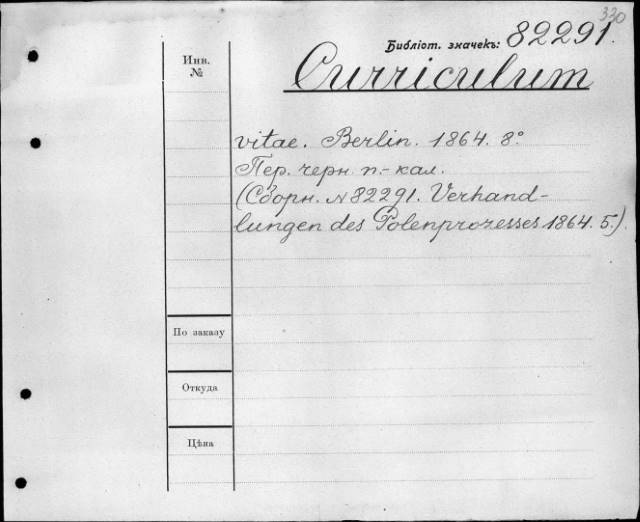 330
Библіот. значекъ: 82291.
Инв.
№
Curriculum
vitae. Berlin. 1864. 8°
Пер. черн. п.-кал.
(Сборн. № 82291. Verhand-
lungen des Polenprozesses 1864. 5.)
По заказу
Откуда
Цѣна